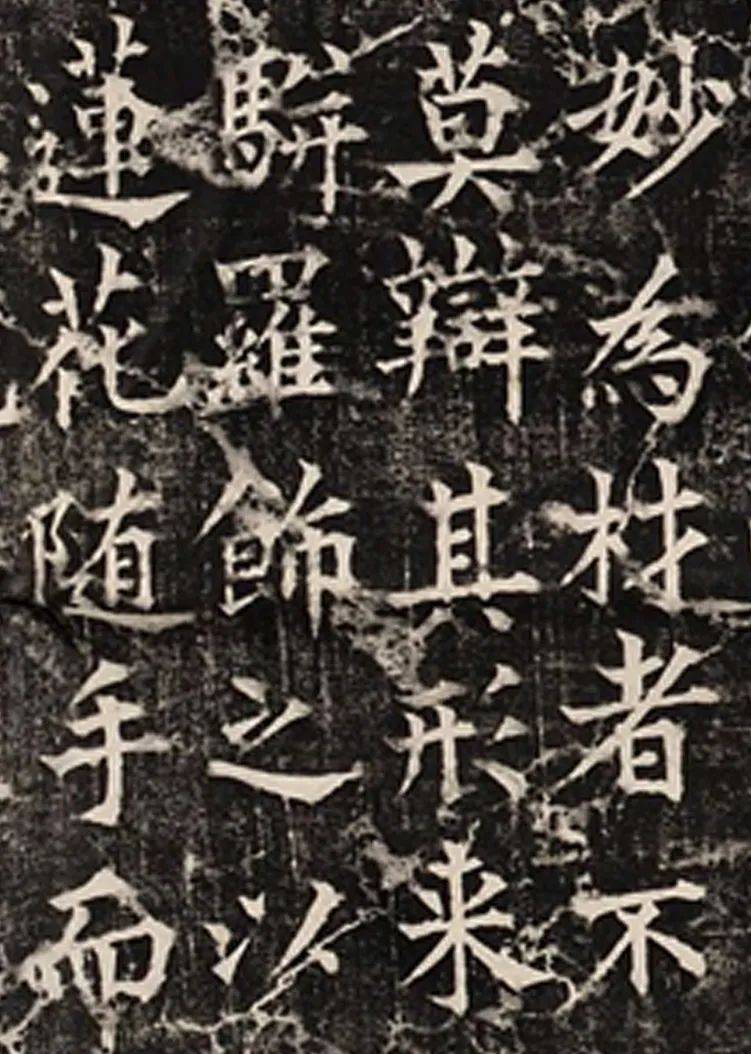 妙為材者不
莫辯其形来
駢羅飾之以
蓮花随手而